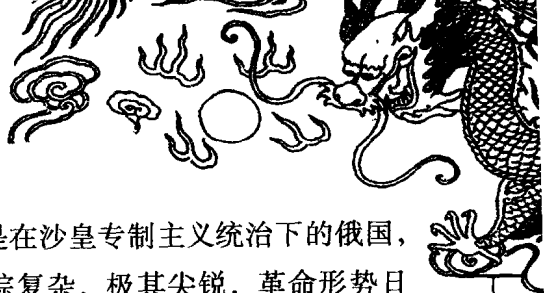 是在沙皇专制主义统治下的俄国，
综复杂，极其尖锐，革命形势日